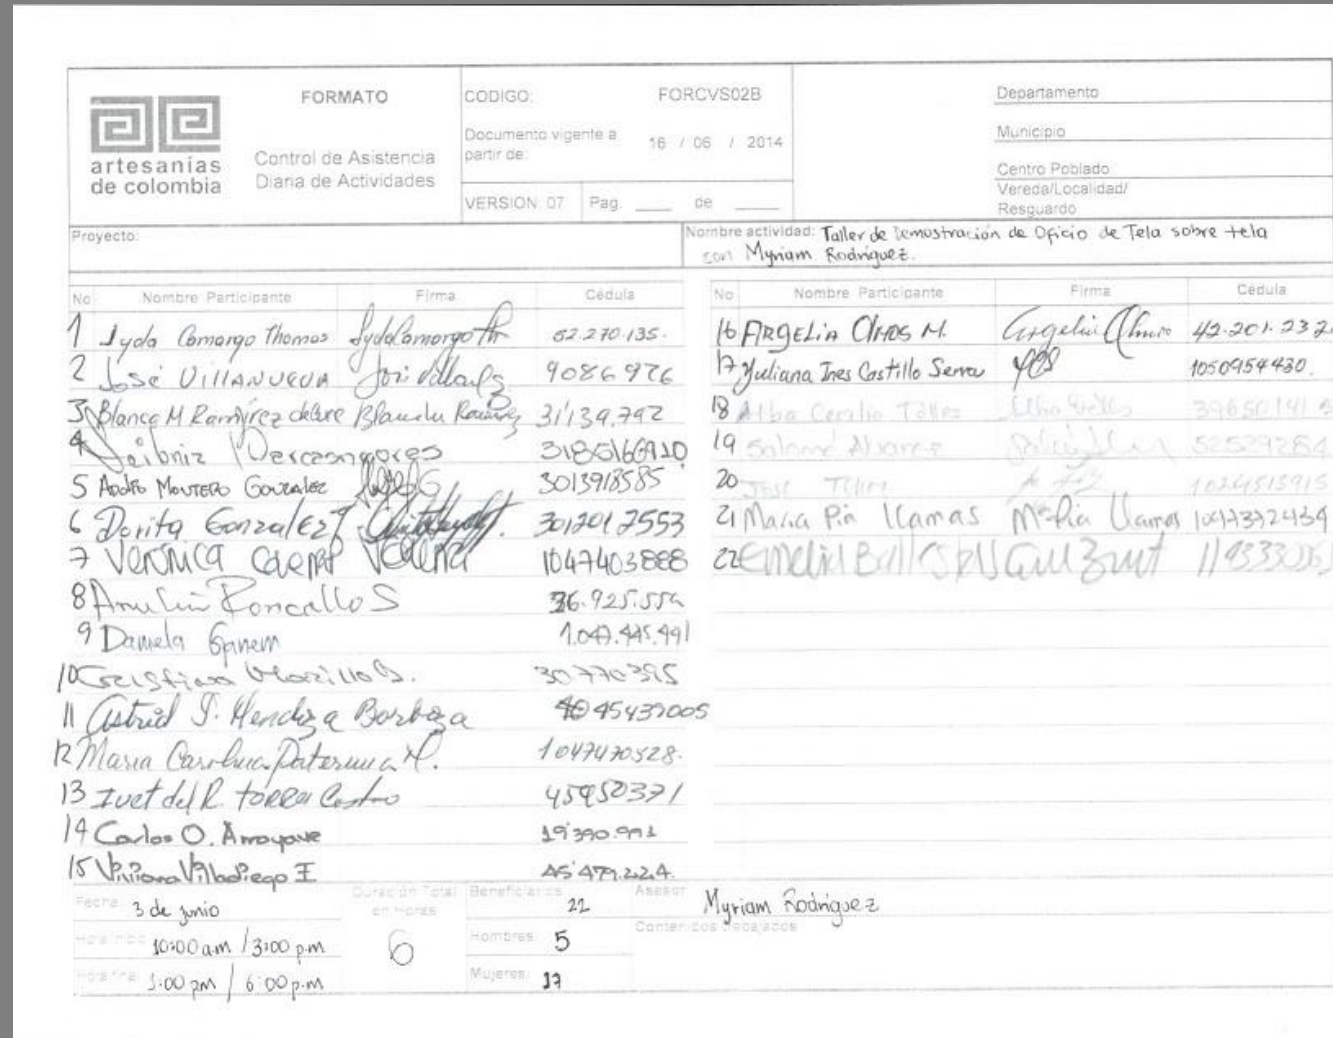 artesanías
de colombia
FORMATO
Control de Asistencia
Diaria de Actividades
CODIGO: FORCVS02B
Documento vigente a
partir de: 16 / 06 / 2014
VERSION: 07 Pag. ____ de ____
Departamento
Municipio
Centro Poblado
Vereda/Localidad/
Resguardo
Proyecto:
Nombre actividad: Taller de Demostración de Oficio de Tela sobre tela
con Myriam Rodríguez.
No Nombre Participante Firma Cédula
1 Lyda Camargo Thomas Lyda Camargo Th 52.270.135.
2 José VILLANUEVA José Villanueva 9086976
3 Blanca M Ramírez Blanca Ramírez 31'139.792
4 Leibniz 3185166910
5 ADOLFO MONTERO GONZALEZ 3013918585
6 Dorita Gonzalez 3012012553
7 Verónica 1047403888
8 Roncallo S
9 Daniela Ganem
10 30770395
11 Astrid J. Mendoza Barboza 45439005
12 Maria Carolina Paternina M. 1047470528.
13 Ivet del R. Torres Castro
14 Carlos O. Arroyave 19'390.991
15 Viviana Villadiego I 45'479.224.
No Nombre Participante Firma Cédula
16 ARGELIA Olmos M. Argelia Olmos 42.201.232
17 Yuliana Ines Castillo Serna YCS 1050954430.
18 Alba Cecilia Téllez Alba Téllez
19 Salomé Alvarez
20 José
21 Maria Pia Llamas Mª Pia Llamas 1047372434
22
Fecha: 3 de junio
Hora inicio: 10:00 a.m / 3:00 p.m
Hora final: 1:00 pm / 6:00 p.m
Duración Total
en Horas
6
Beneficiarios 22
Hombres: 5
Mujeres: 17
Asesor Myriam Rodríguez
Contenidos trabajados